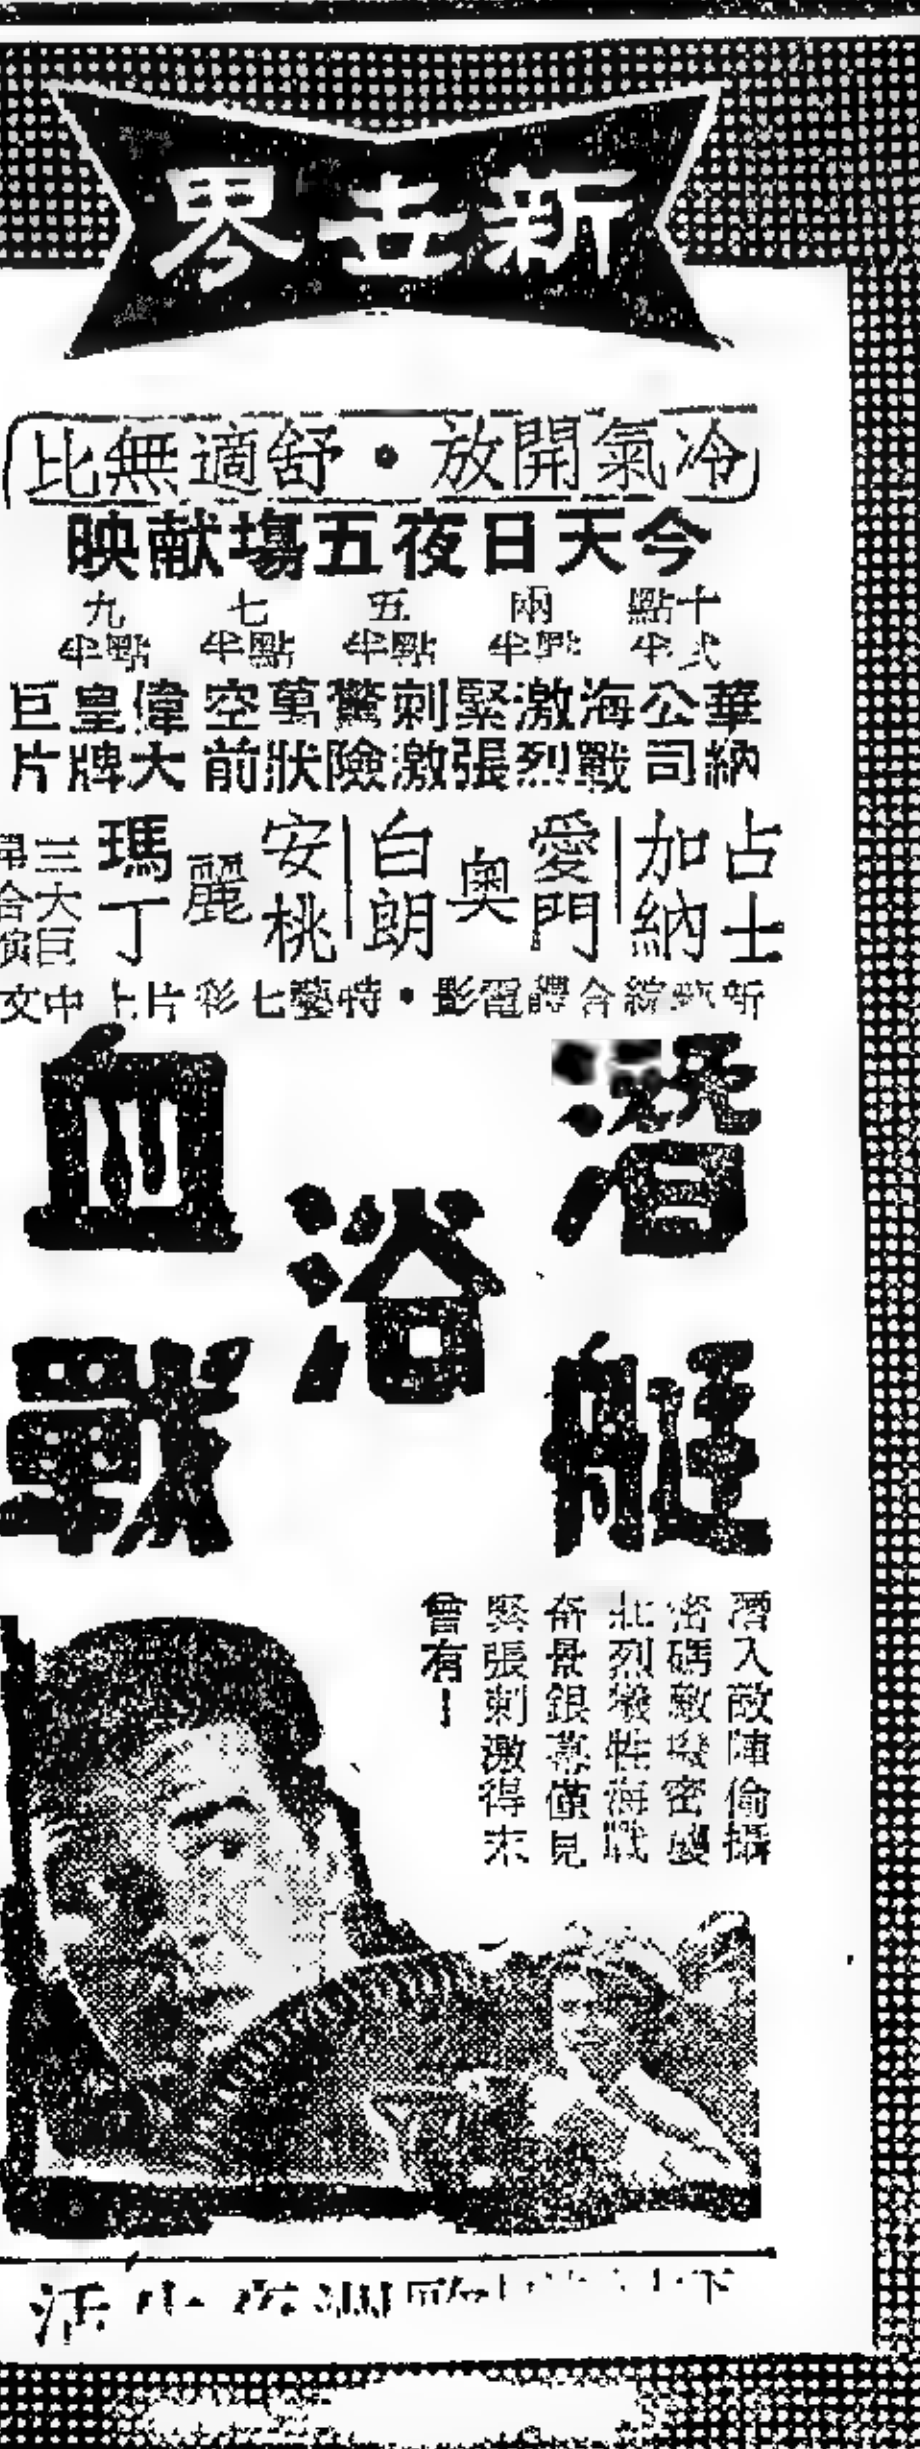 新世界
冷氣開放・舒適無比
今天日夜五塲献映
十弍點半
兩點半
五點半
七點半
九點半
華納公司
海戰激烈緊張刺激驚險萬狀空前
偉大皇牌巨片
占士加納
愛門奧白朗
安桃麗瑪丁
三大巨合演
新綜合體電影・特藝七彩片上中文
潛艇浴血戰
潛入敵陣偷攝
密碼敵發密
壯烈犧牲海戰
奇景銀幕僅見
緊張刺激得未
曾有！